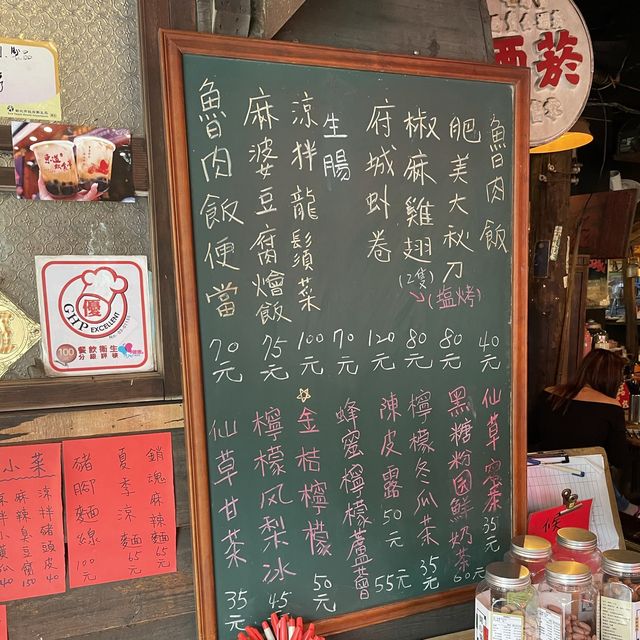 魯肉飯 40元
肥美大秋刀(塩烤) 80元
椒麻雞翅(2隻) 80元
府城蚵卷 120元
生腸 70元
涼拌龍鬚菜 100元
麻婆豆腐燴飯 75元
魯肉飯便當 70元
仙草蜜茶 35元
黑糖粉圓鮮奶茶 60元
檸檬冬瓜茶 35元
陳皮露 50元
蜂蜜檸檬蘆薈 55元
金桔檸檬 50元
檸檬风梨冰 45
仙草甘茶 35元
GHP EXCELLENT
優
100
餐飲衛生
分級評核
銷魂麻辣麵 65元
夏季涼麵 65元
豬腳麵線 100元
小菜
涼拌豬頭皮 40
麻辣臭豆腐 150
菸